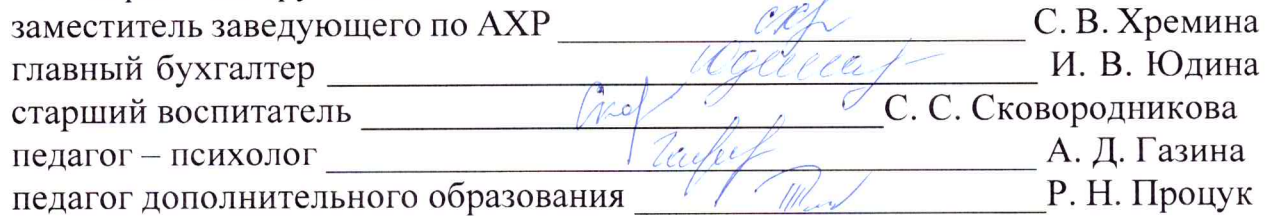 заместитель заведующего по АХР С. В. Хремина
главный бухгалтер Юдина И. В. Юдина
старший воспитатель С. С. Сковородникова
педагог – психолог А. Д. Газина
педагог дополнительного образования Р. Н. Процук